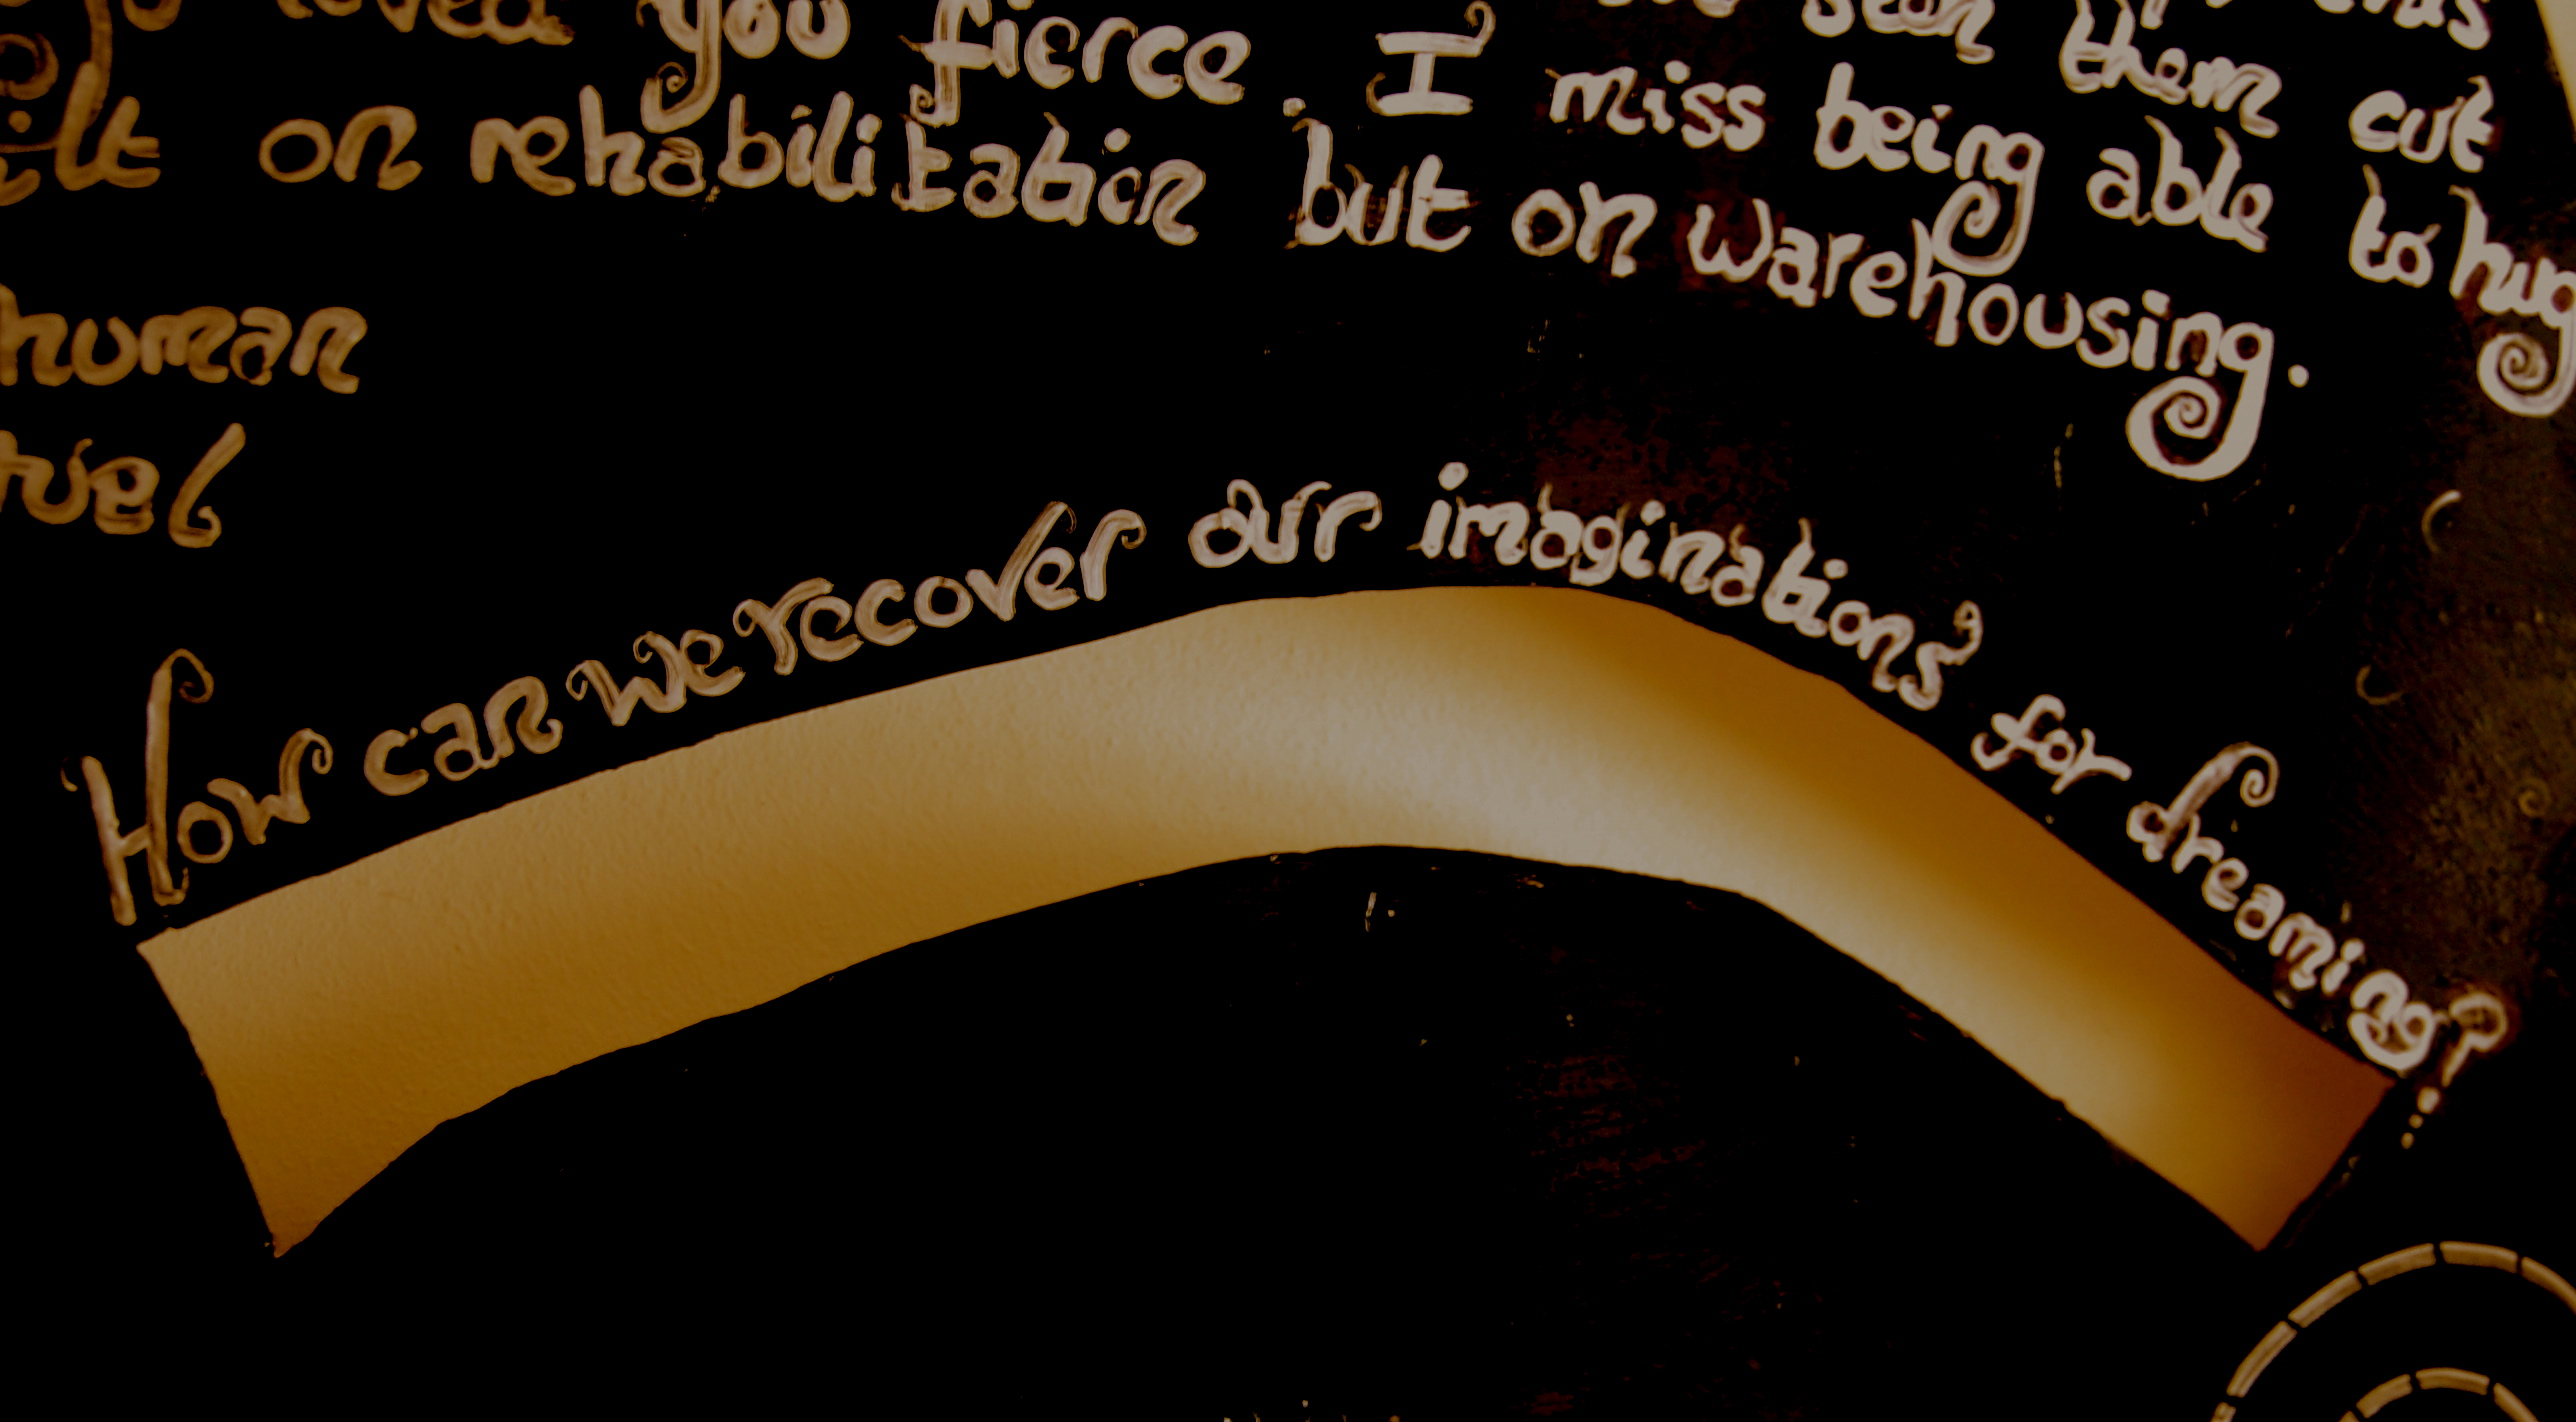 loved you fierce. I miss being able to hug
seen them cut
on rehabilitation but on warehousing.
human
How can we recover our imaginations for dreaming?